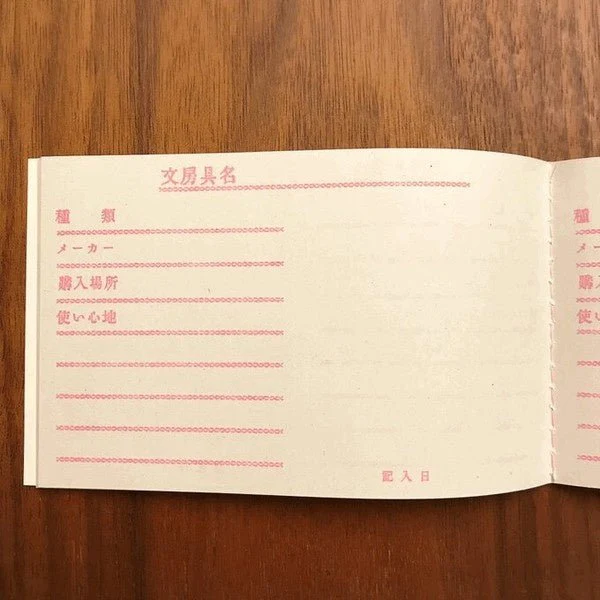 文房具名
種　類
メーカー
購入場所
使い心地
記入日
種
メー
購入
使い